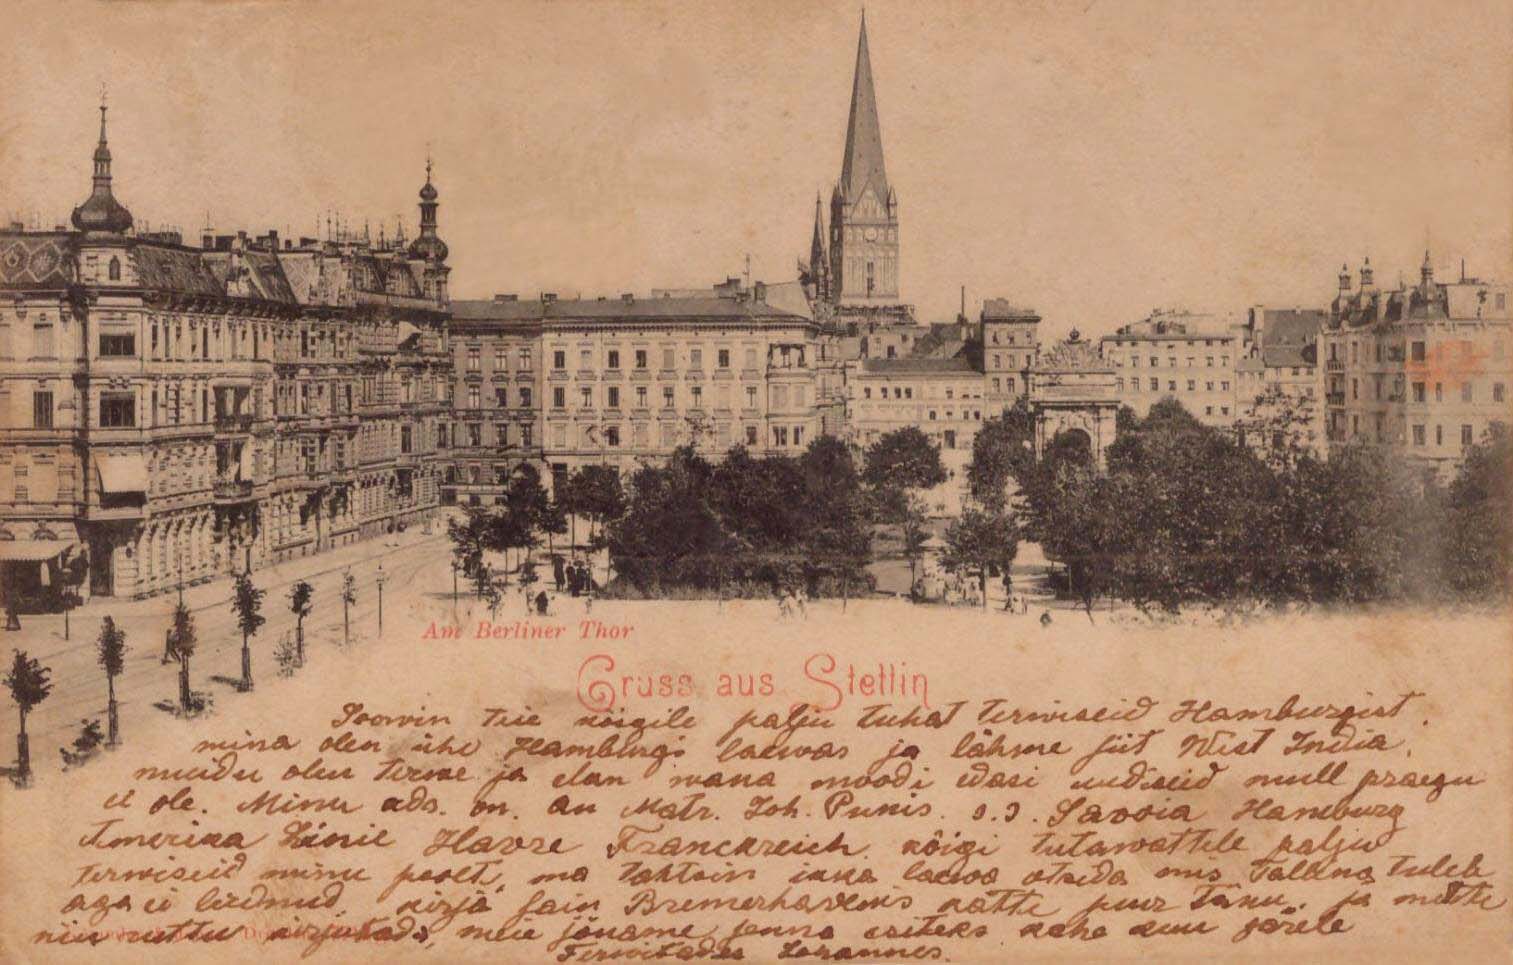 Am Berliner Thor
Gruss aus Stettin
Soowin teie kõigile palju tuhat terwiseid Hamburgist.
mina olen ühe Hamburgi laewas ja lähme siit West India,
muidu olen terwe ja elan wana moodi edasi uudiseid mull praegu
ei ole. Minu ads. on. An Matr. Joh. Punis. s.s. Savoia Hamburg
Amerika Linie Havre Franckreich. kõigi tutawattele palju
terwiseid minu poolt, ma tahtsin ikka laewa otsida mis Tallina tuleb
aga ei leidnud. kirja sain Bremerhavenis kätte suur Tänu. ja
kirjutada, meie jõuame senna esiteks kahe kuu järele
Terwitades Johannes.